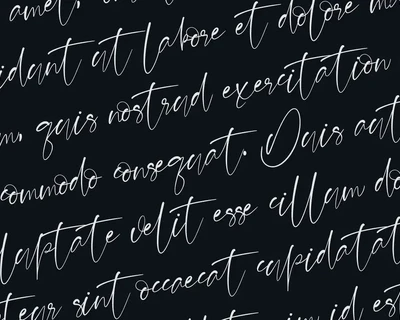 amet,
idunt ut labore et dolore m
m, quis nostrud exercitation
commodo consequat. Duis aut
luptate velit esse cillum do
teur sint occaecat cupidatat
im id est